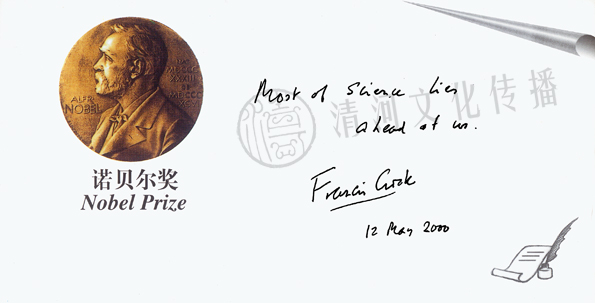 ALFR
NOBEL
诺贝尔奖
Nobel Prize
Most of Science lies
ahead of us.
Francis Crick
12 May 2000
清河文化传播